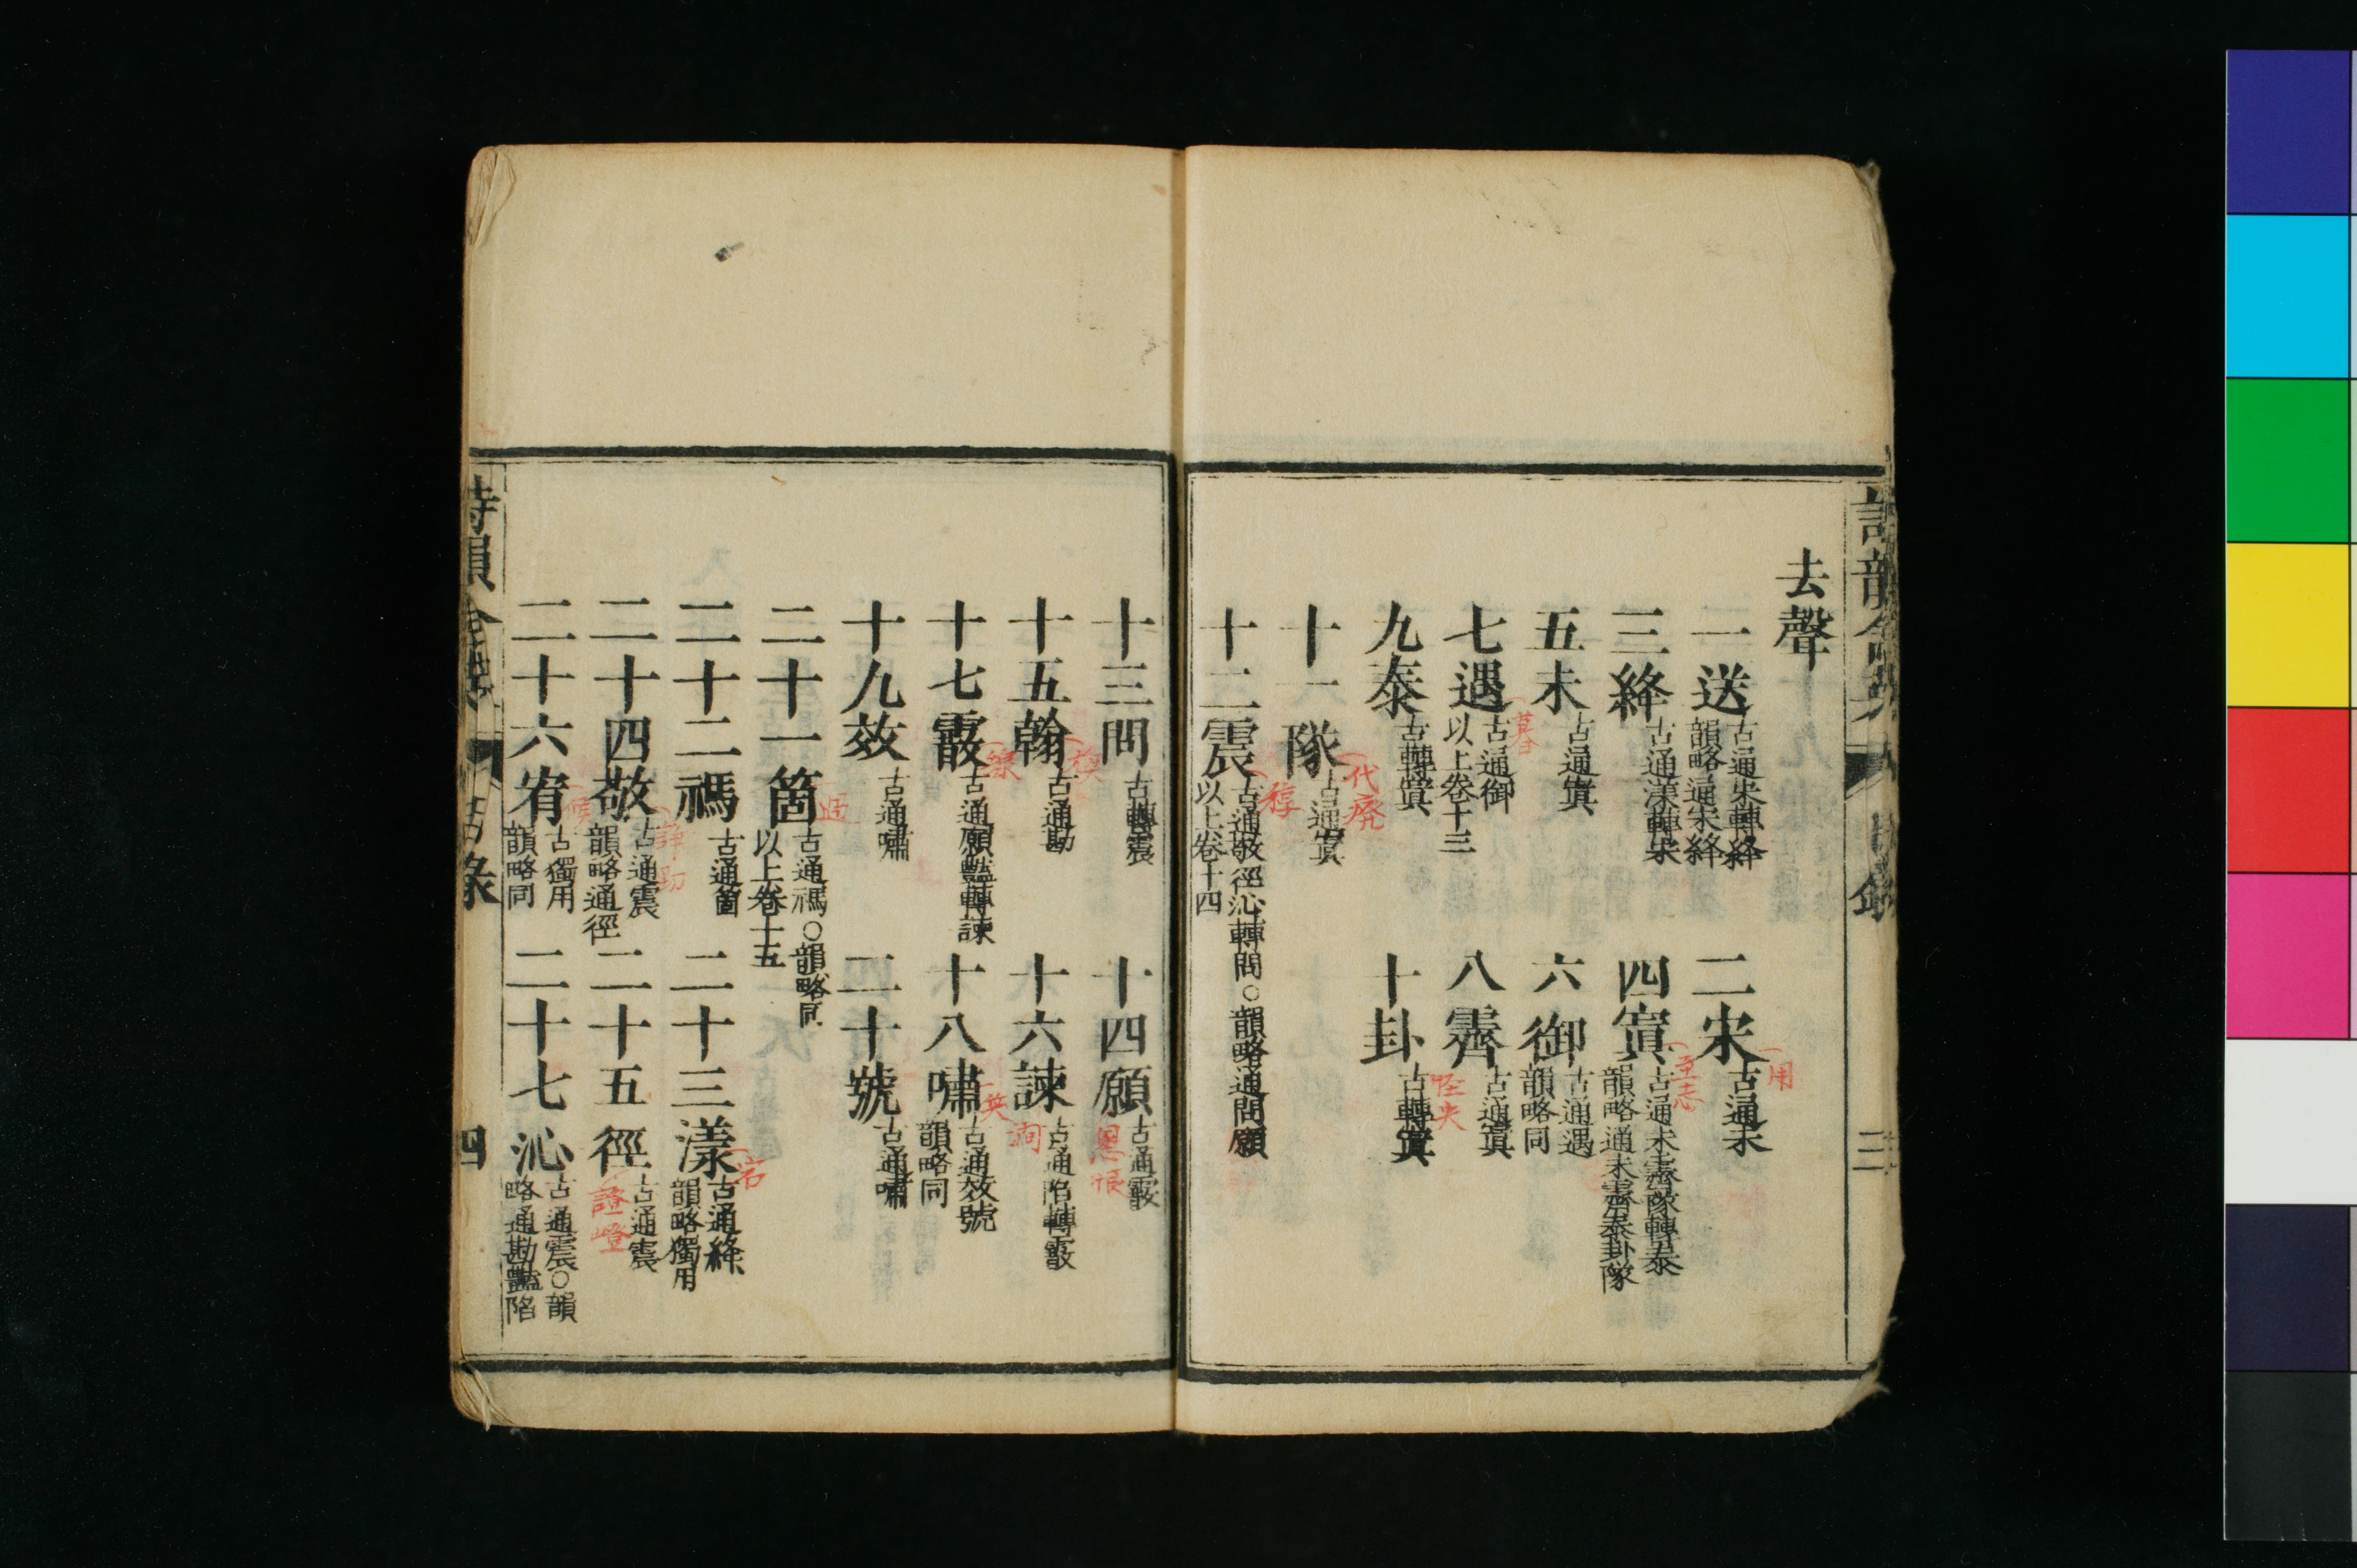 去聲
一送 古通宋轉絳 韻略通宋絳 二宋 古通未 用
三絳 古通漾轉宋 四寘 古通未霽隊轉泰 韻略通未霽泰卦隊 至志
五未 古通寘 六御 古通遇 韻略同
七遇 古通御 以上卷十三 暮 八霽 古通寘
九泰 古轉寘 十卦 古轉寘 怪夬
十一隊 古通寘 代廃
十二震 古通敬徑沁轉問○韻略通問願 以上卷十四 稕
目錄 三
十三問 古轉震 十四願 古通霰 恩恨
十五翰 古通勘 換 十六諫 古通陷轉霰
十七霰 古通願豔轉諫 線 十八嘯 古通效號 韻略同
十九效 古通嘯 二十號 古通嘯
二十一箇 古通禡○韻略同 以上卷十五 過
二十二禡 古通箇 二十三漾 古通絳 韻略獨用 宕
二十四敬 古通震 韻略通徑 二十五徑 古通震 證嶝
二十六宥 古獨用 韻略同 候 二十七沁 古通震○韻 略通勘豔陷
詩韻 目錄 四